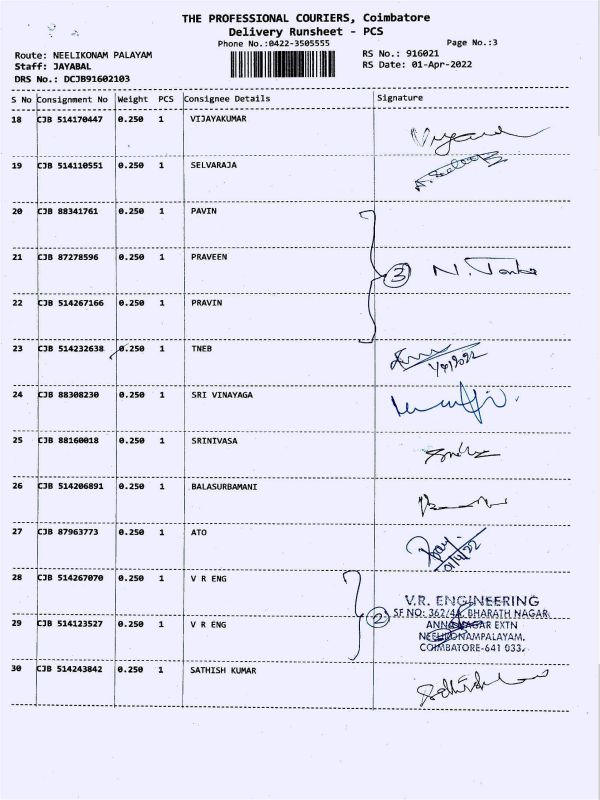 THE PROFESSIONAL COURIERS, Coimbatore
Delivery Runsheet - PCS
Phone No.:0422-3505555
Page No.:3
Route: NEELIKONAM PALAYAM
RS No.: 916021
Staff: JAYABAL
RS Date: 01-Apr-2022
DRS No.: DCJB91602103
S No Consignment No Weight PCS Consignee Details Signature
18 CJB 514170447 0.250 1 VIJAYAKUMAR
19 CJB 514110551 0.250 1 SELVARAJA
20 CJB 88341761 0.250 1 PAVIN
21 CJB 87278596 0.250 1 PRAVEEN 3
22 CJB 514267166 0.250 1 PRAVIN
23 CJB 514232638 0.250 1 TNEB
1/4/2022
24 CJB 88308230 0.250 1 SRI VINAYAGA
25 CJB 88160018 0.250 1 SRINIVASA
26 CJB 514206891 0.250 1 BALASURBAMANI
27 CJB 87963773 0.250 1 ATO
01/4/22
28 CJB 514267070 0.250 1 V R ENG
V.R. ENGINEERING
SF NO: 362/4A, BHARATH NAGAR
29 CJB 514123527 0.250 1 V R ENG 2
ANNA NAGAR EXTN
NEELIKONAMPALAYAM,
COIMBATORE-641 033.
30 CJB 514243842 0.250 1 SATHISH KUMAR